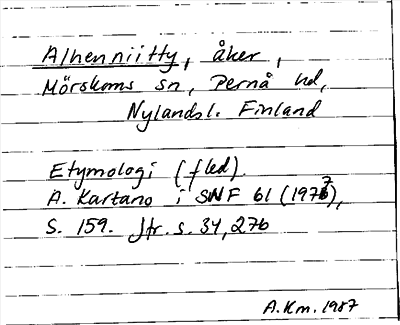 Alhenniitty, åker,
Mörskoms sn, Pernå hd,
Nylandsl. Finland
Etymologi (fled).
A. Kartano i SNF 61 (1977),
S. 159. Jfr. s. 34, 276
A.Km. 1987